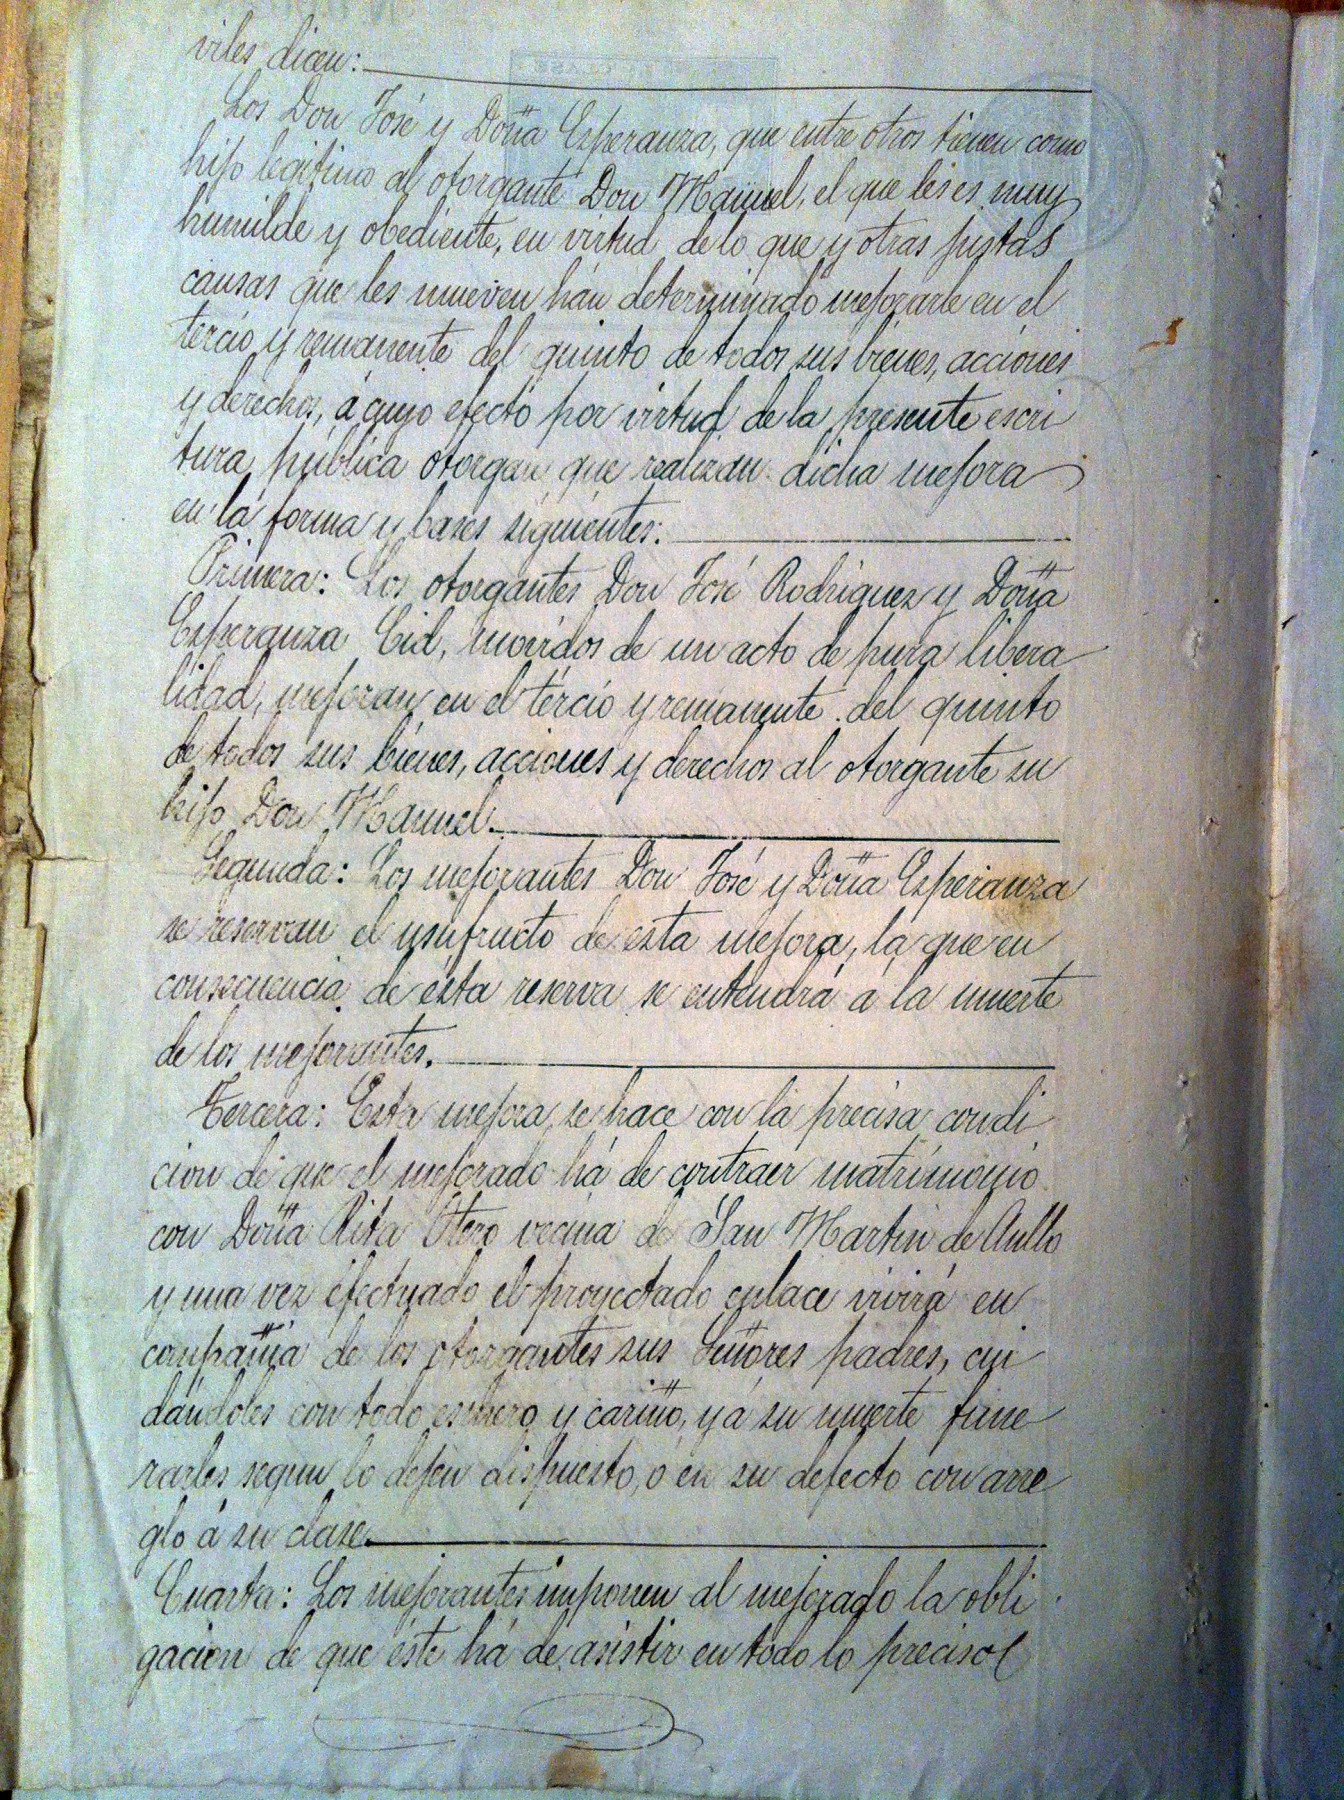 viles dicen:
Los Don José y Doña Esperanza, que entre otros tienen como
hijo legitimo al otorgante Don Manuel, el que les es muy
humilde y obediente, en virtud de lo que y otras justas
causas que les mueven hán determinado mejorarle en el
tercio y remanente del quinto de todos sus bienes, acciones
y derechos, á cuyo efecto por virtud de la presente escri
tura pública otorgan que realizan dicha mejora
en la forma y bases siguientes:
Primera: Los otorgantes Don José Rodriguez y Doña
Esperanza Cid, movidos de un acto de pura libera
lidad, mejoran en el tercio y remanente del quinto
de todos sus bienes, acciones y derechos al otorgante su
hijo Don Manuel.
Segunda: Los mejorantes Don José y Doña Esperanza
se reservan el usufructo de esta mejora, la que en
consecuencia de ésta reserva se entendrá á la muerte
de los mejorantes.
Tercera: Esta mejora se hace con la precisa condi
cion de que el mejorado há de contraer matrimonio
con Doña Rita Otero vecina de San Martin de
y una vez efectuado el proyectado enlace vivirá en
compañia de los otorgantes sus Señores padres, cui
dándoles con todo esmero y cariño, y á su muerte fune
rarles segun lo dejen dispuesto, ó en su defecto con arre
glo á su clase.
Cuarta: Los mejorantes imponen al mejorado la obli
gacion de que éste há de asistir en todo lo preciso